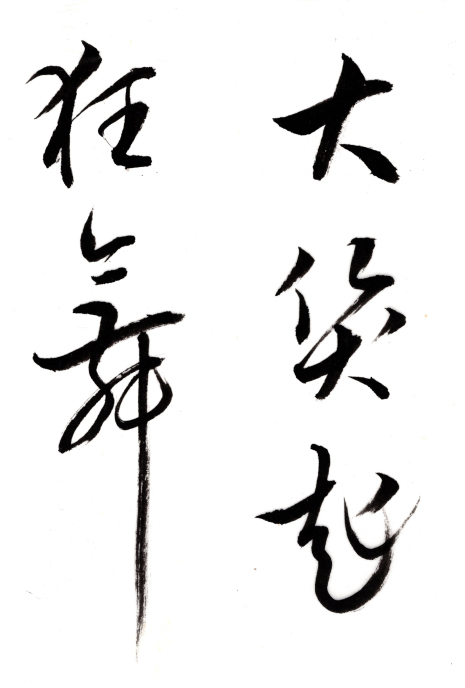 大笑起
狂舞